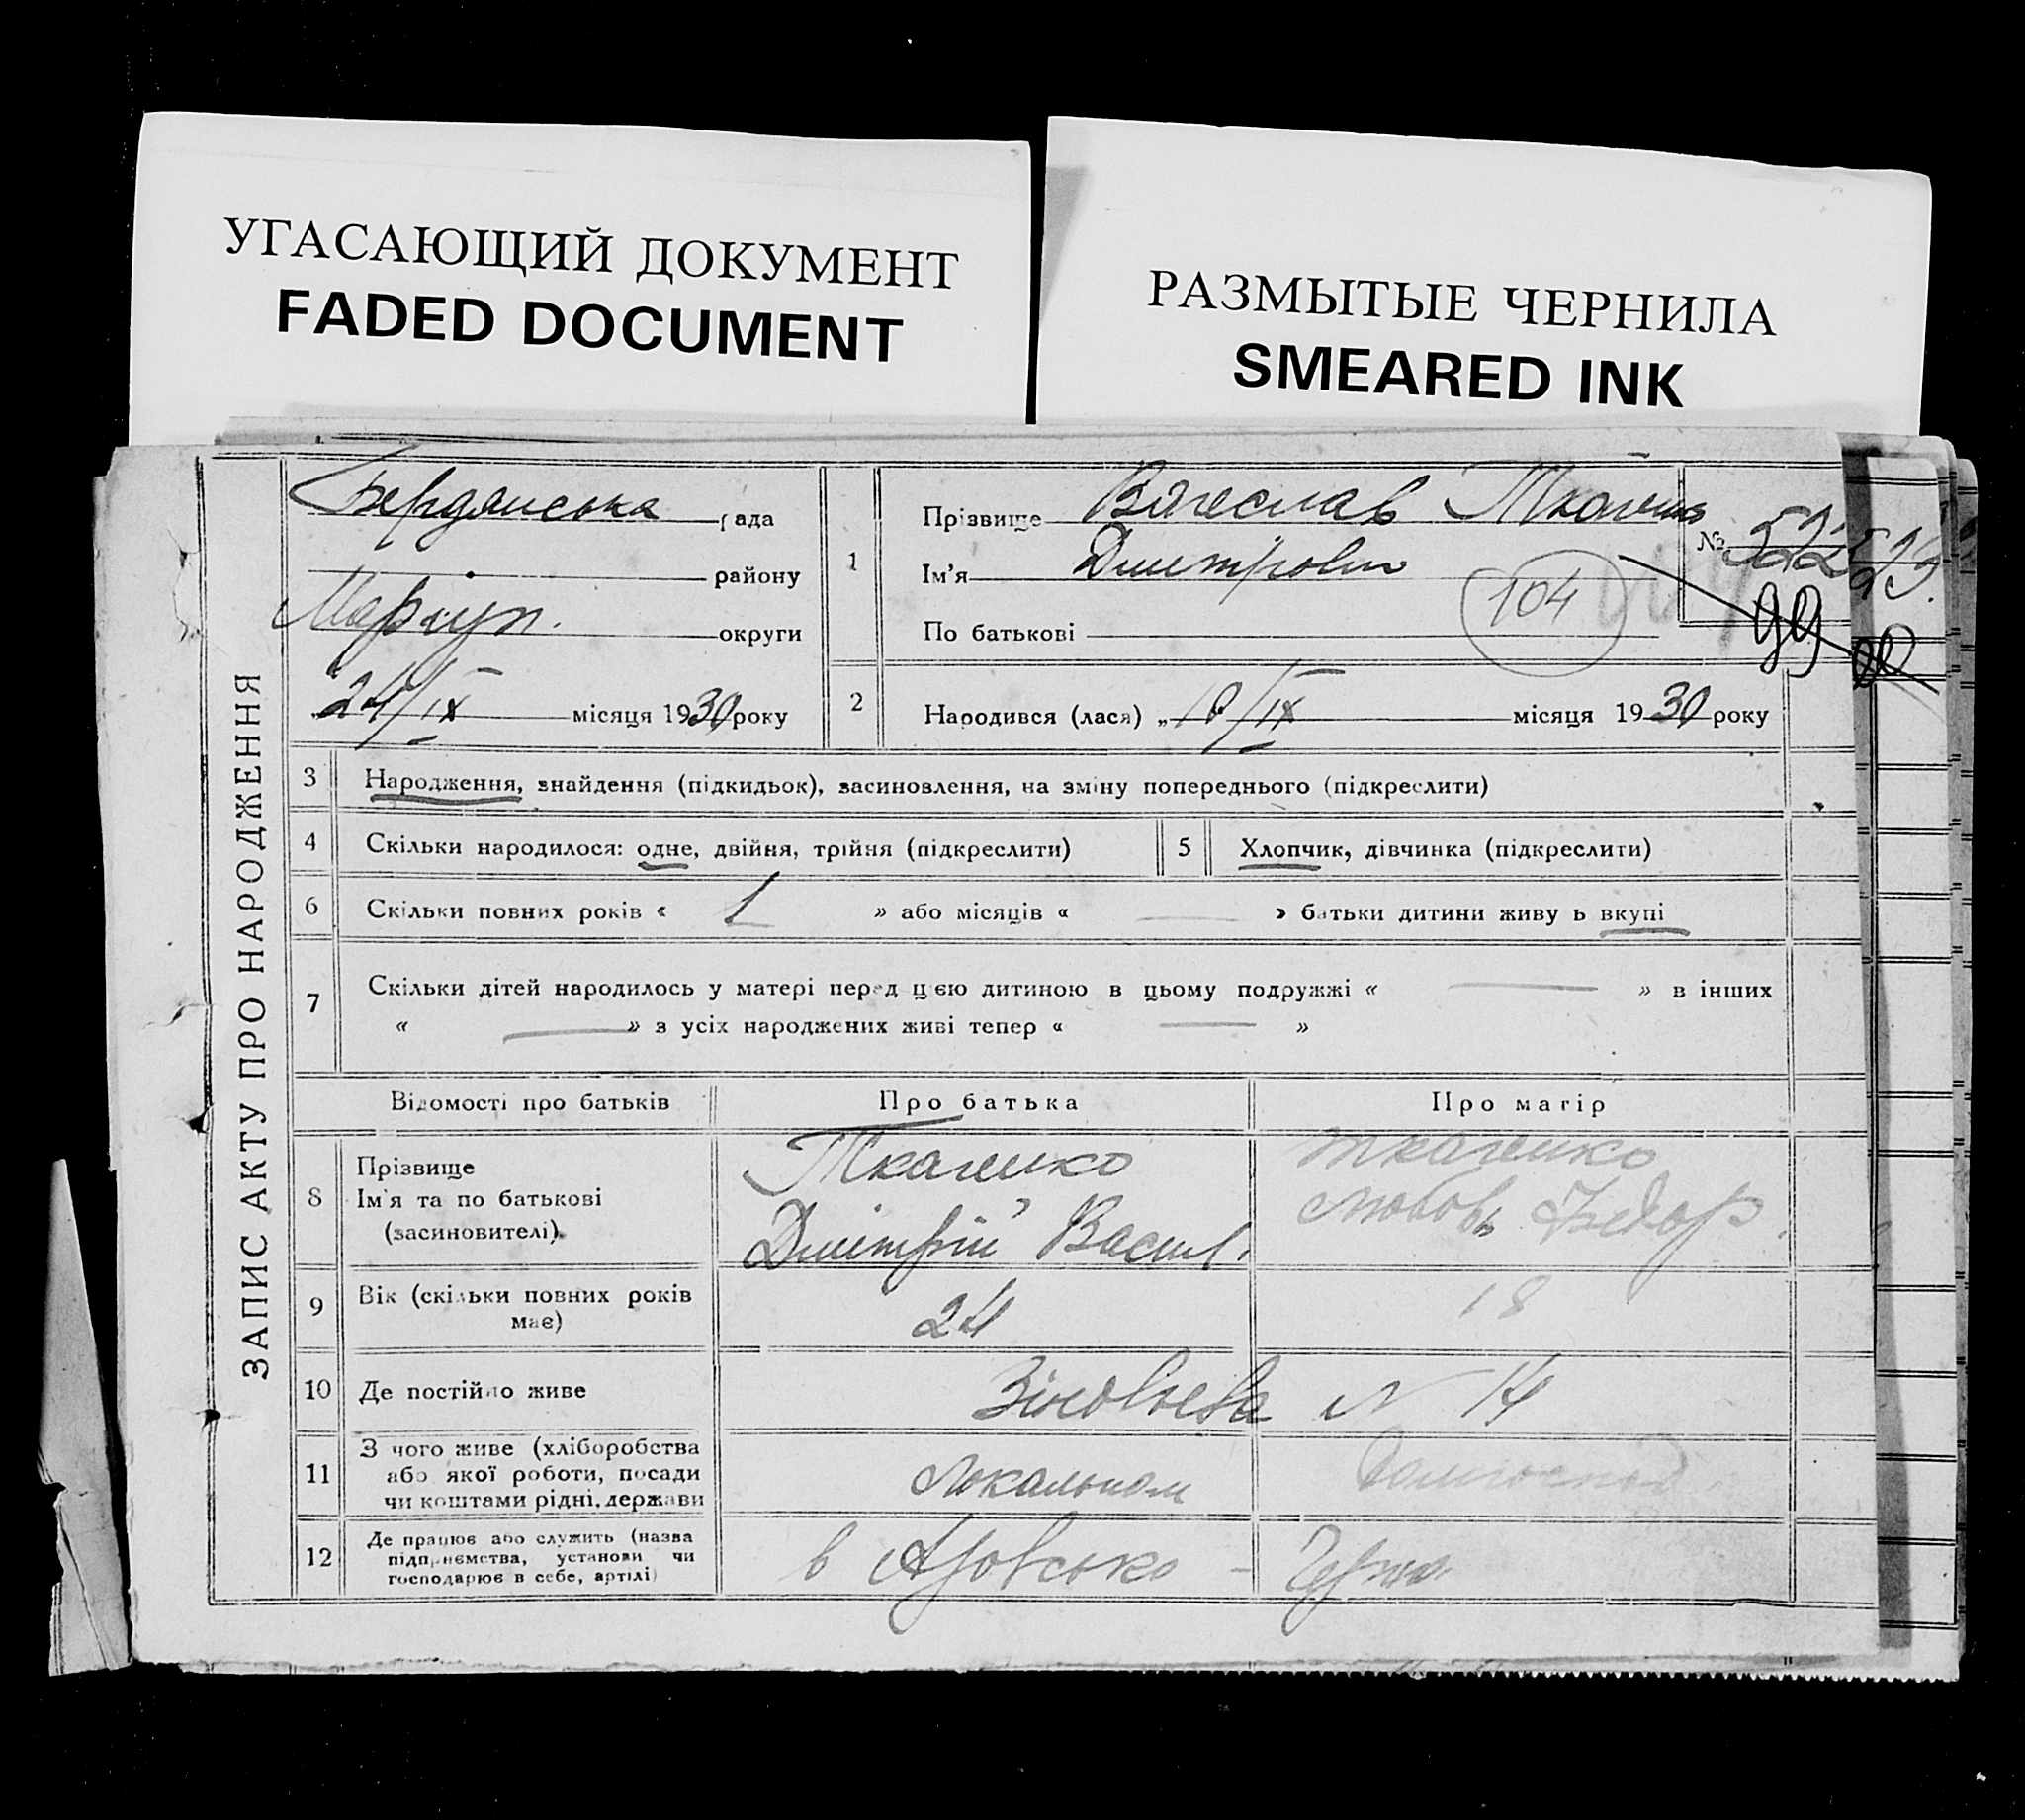 УГАСАЮЩИЙ ДОКУМЕНТ
FADED DOCUMENT
РАЗМЫТЫЕ ЧЕРНИЛА
SMEARED INK
ЗАПИС АКТУ ПРО НАРОДЖЕННЯ
Бердянська рада
району
Маріуп. округи
24/IX місяця 1930 року
1
Прізвище Вячеслав
Ім'я Дмитрович
По батькові
104
№ 522
99
2 Народився (лася) „ 10/IX місяця 1930 року
3 Народження, знайдення (підкидьок), засиновлення, на зміну попереднього (підкреслити)
4 Скільки народилося: одне, двійня, трійня (підкреслити)
5 Хлопчик, дівчинка (підкреслити)
6 Скільки повних років « 1 » або місяців « — » батьки дитини живуть вкупі
7 Скільки дітей народилось у матері перед цією дитиною в цьому подружжі « — » в інших
« — » з усіх народжених живі тепер « — »
Відомості про батьків Про батька Про матір
8 Прізвище
Ім'я та по батькові
(засиновителі).
Ткаченко
Дмітрій Васил.
Ткаченко
Любовь Федор.
9 Вік (скільки повних років
має)
24 18
10 Де постійно живе Зіновьева N 14
11 З чого живе (хліборобства
або якої роботи, посади
чи коштами рідні, держави
12 Де працює або служить (назва
підприємства, установи чи
господарює в себе, артілі)
в Азовсько -